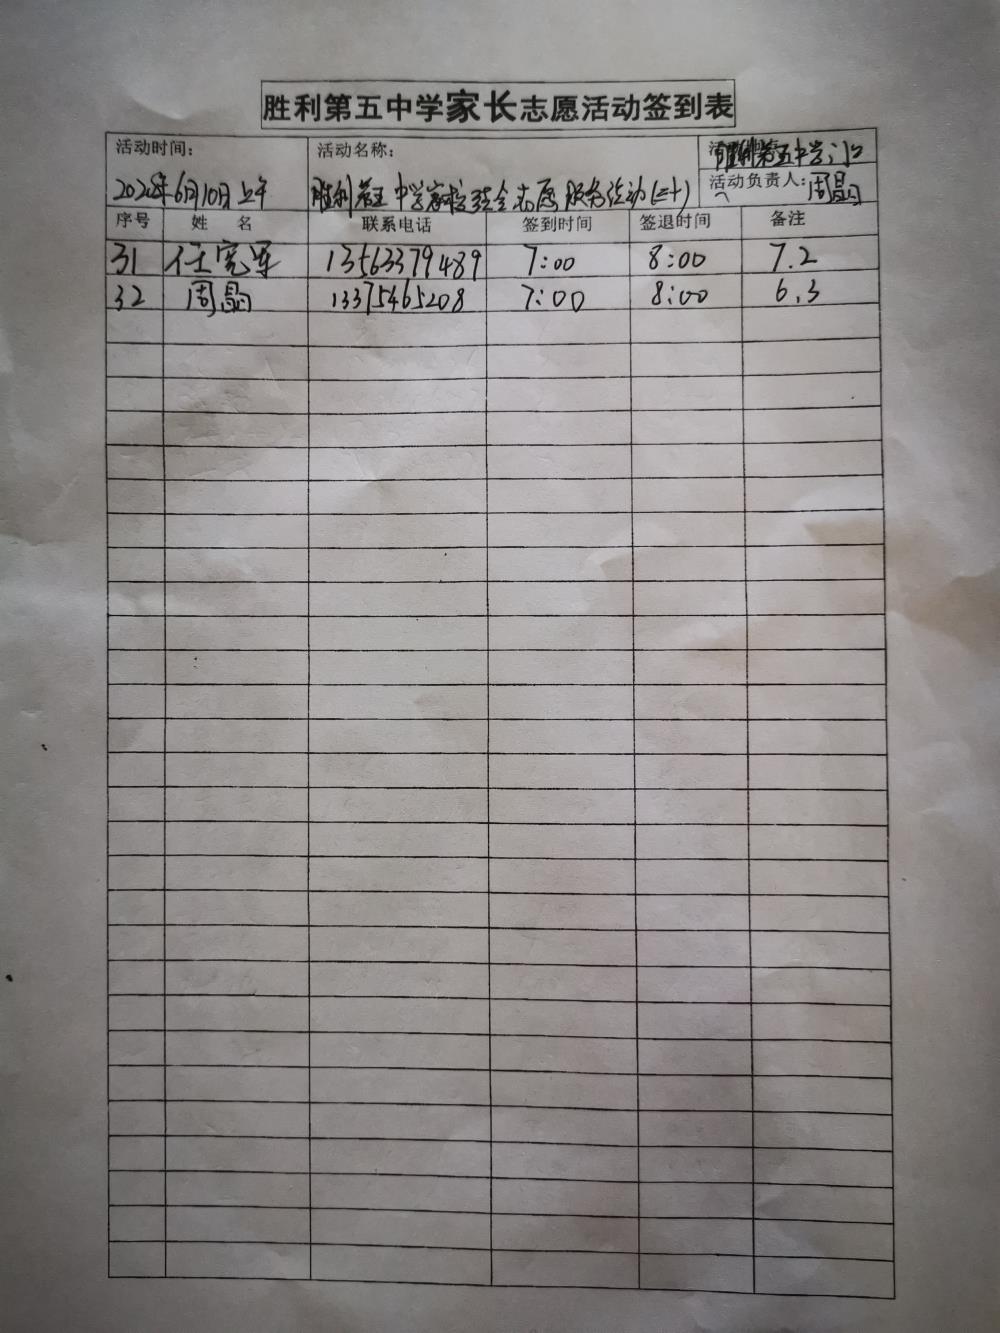 胜利第五中学家长志愿活动签到表
活动时间： 活动名称：
胜利第五中学门口
2024年6月10日上午 胜利第五中学家校联合志愿服务活动(二十) 活动负责人：周晶
序号 姓名 联系电话 签到时间 签退时间 备注
31 任宪军 13563379489 7:00 8:00 7.2
32 周晶 13375465208 7:00 8:00 6.3